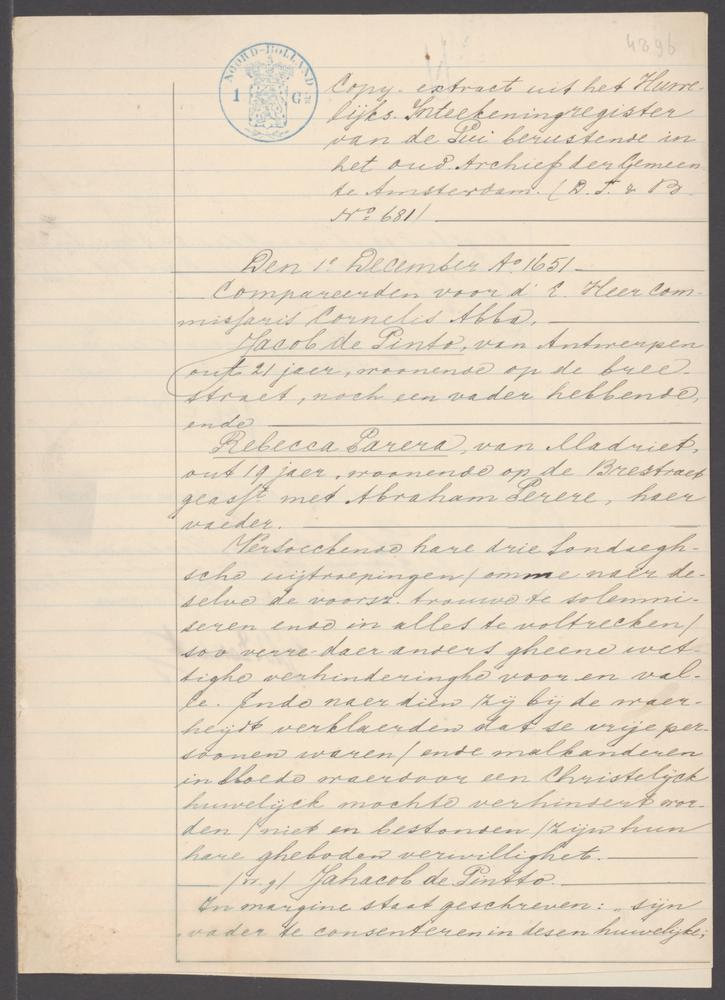 4396
NOORD-HOLLAND
1 G
Copy. extract uit het Huwe-
lijks. Inteekeningregister
van de Pui berustende in
het oud. Archief der Gemeen
te Amsterdam. (D. T. & B
No 681)
Den 1e December Ao 1651
Compareerden voor d' E. Heer Com-
missaris Cornelis Abba,
Jacob de Pinto, van Antwerpen
out 21 jaer, woonende op de bree-
straet, noch een vader hebbende,
ende
Rebecca Parera, van Madriet,
out 19 jaer, woonende op de Brestraet
geasst met Abraham Perere, haer
vaeder.
Versoeckende hare drie Sondaegh-
sche uijtroepingen / omme naer de-
selve de voorsz. trouwe te solemni-
seren ende in alles te voltrecken /
soo verre daer anders gheene wet-
tighe verhinderinghe voor en val-
le. Ende naer dien zij bij de waer-
heijdt verklaerden dat se vrije per-
soonen waren / ende malkanderen
in bloede waerdoor een Christelijck
huwelijck mochte verhindert wor-
den / niet en bestonden / zijn hun
hare gheboden verwillighet.
(w.g) Jahacob de Pintto.
In margine staat geschreven: "sijn
vader te consenteren in desen huwelijke;